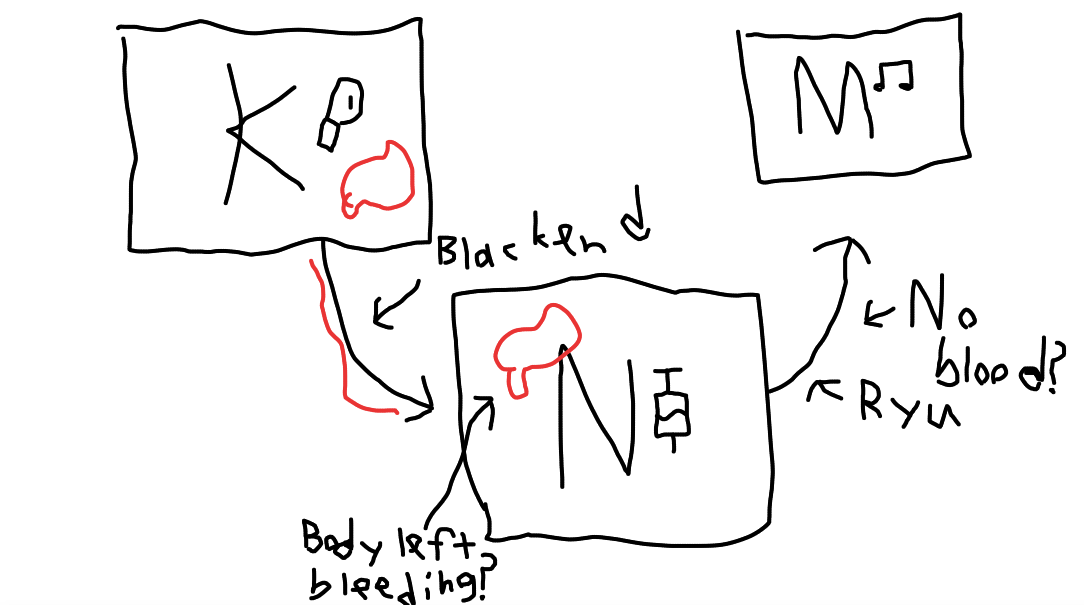 K
M
Blacken
N
No
blood?
Ryu
Body left
bleeding?